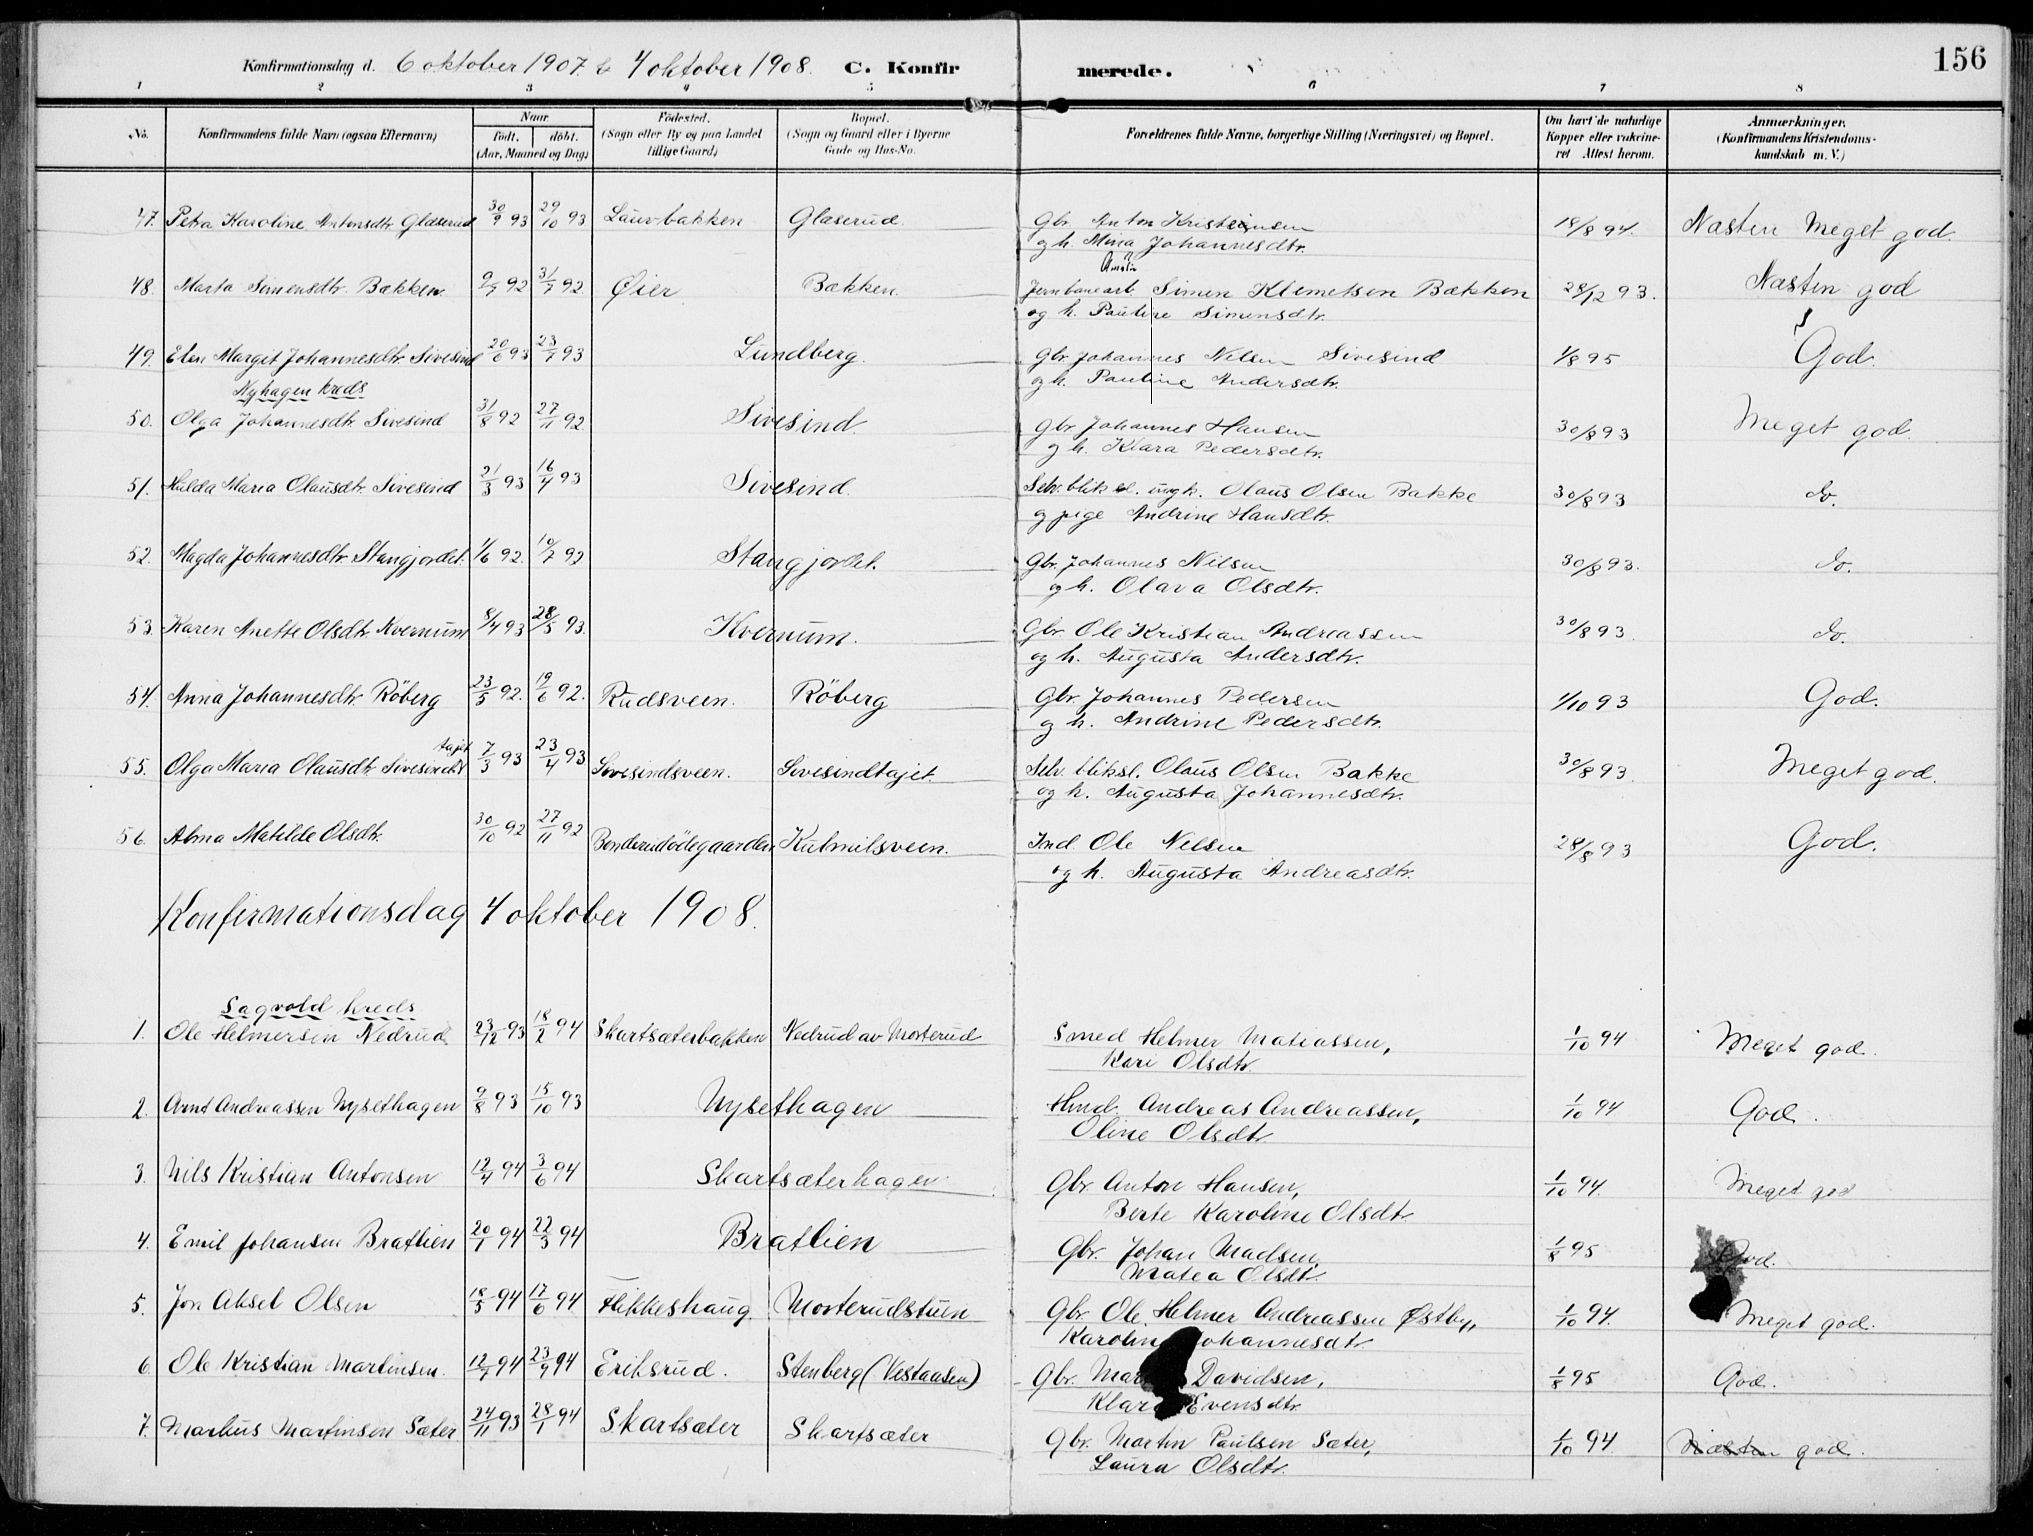 Konfirmationsdag d. 6 oktober 1907. & 4 oktober 1908. C. Konfirmerede. 156
1 2 3 4 5 6 7 8
No. Konfirmandens fulde Navn (ogsaa Efternavn) Naar født. døbt. (Aar, Maaned og Dag) Fødested. (Sogn eller By og paa Landet tillige Gaard) Bopæl. (Sogn og Gaard eller i Byerne Gade og Hus-No. Forældrenes fulde Navne, borgerlige Stilling (Næringsvei) og Bopæl. Om havt de naturlige Kopper eller vakcineret Attest herom. Anmærkninger. (Konfirmandens Kristendomskundskab m. V.)
47. Petra Karoline Antonsdtr. Glæserud 30/9 93 29/10 93 Lauvbakken Glæserud. Gbr. Anton Kristensen 18/8 94. Næsten Meget god.
og h. Mina Johannesdtr.
Amalia
48. Marta Simensdtr. Bækken. 9/7 92 31/7 92 Øier Bækken. Jernbanearb. Simen Klemetsen Bækken 28/12 93. Næsten god
og h. Pauline Simensdtr.
49. Elen Margit Johannesdtr. Sivesind 20/6 93 23/7 93 Lundberg. Gbr Johannes Nilsen Sivesind 1/8 95 God.
og h. Pauline Andersdtr.
Nyhagen kreds
50. Olga Johannesdtr. Sivesind 31/8 92 27/11 92. Sivesind Gbr Johannes Hansen 30/8 93 Meget god.
og h. Klara Pedersdtr.
51. Hulda Maria Olausdtr. Sivesind 21/3 93 16/4 93 Sivesind. Selv. bliksl. ungk. Olaus Olsen Bakke 30/8 93 do.
og pige Andrine Hansdtr.
52. Magda Johannesdtr. Stangjordet. 1/6 92. 10/7 92 Stangjordet. Gbr. Johannes Nilsen 30/8 93. do.
og h. Olava Olsdtr.
53. Karen Anette Olsdtr. Kvernum 8/4 93 28/5 93. Kvernum. Gbr. Ole Kristian Andreassen 30/8 93. do.
og h. Augusta Andersdtr.
54. Anna Johannesdtr. Röberg 23/5 92. 19/6 92. Rudsveen. Röberg Gbr Johannes Pedersen 1/10 93 God.
og h. Andrine Pedersdtr.
tajet
55. Olga Maria Olausdtr. Sivesind 7/3 93 23/4 93 Sivesindsveen. Sivesindtajet. Selv. bliksl. Olaus Olsen Bakke 30/8 93. Meget god.
og h. Augusta Johannesdtr.
56. Alma Matilde Olsdtr. 30/10 92 27/11 92 Bonderudödegaarden Kulmilsveen. Ind Ole Nilsen 28/8 93 God.
og h. Augusta Andreasdtr.
Konfirmationsdag 4 oktober 1908.
Sagvold kreds
1. Ole Helmersen Nedrud 23/12 93 18/2 94 Skartsæterbakken Nedrud av Mosterud Smed Helmer Matiassen, 1/10 94 Meget god.
Kari Olsdtr.
2. Arnt Andreassen Nysethagen 9/8 93 15/10 93 Nysethagen Hmd. Andreas Andreassen, 1/10 94 God.
Oline Olsdtr
3. Nils Kristian Antonsen 12/4 94 3/6 94 Skartsæterhagen Gbr Anton Hansen, 1/10 94. Meget god
Berte Karoline Olsdtr
4. Emil Johansen Bratlien 20/1 94 22/3 94 Bratlien Gbr. Johan Madsen, 1/8 95 God.
Matea Olsdtr.
5. Jon Aksel Olsen 18/5 94 17/6 94 Flikkeshaug Mosterudstuen Gbr. Ole Helmer Andreassen Østby, 1/10 94. Meget god.
Karolin Johannesdtr.
6. Ole Kristian Martinsen. 12/7 94 23/9 94 Eriksrud. Stenberg (Vestaasen) Gbr. Davidsen, 1/8 95 God.
Klara Evensdtr.
7. Markus Martinsen Sæter 24/11 93 28/1 94 Skartsæter Skartsæter Gbr. Martin Paulsen Sæter, 1/10 94. Næsten god.
Laura Olsdtr.